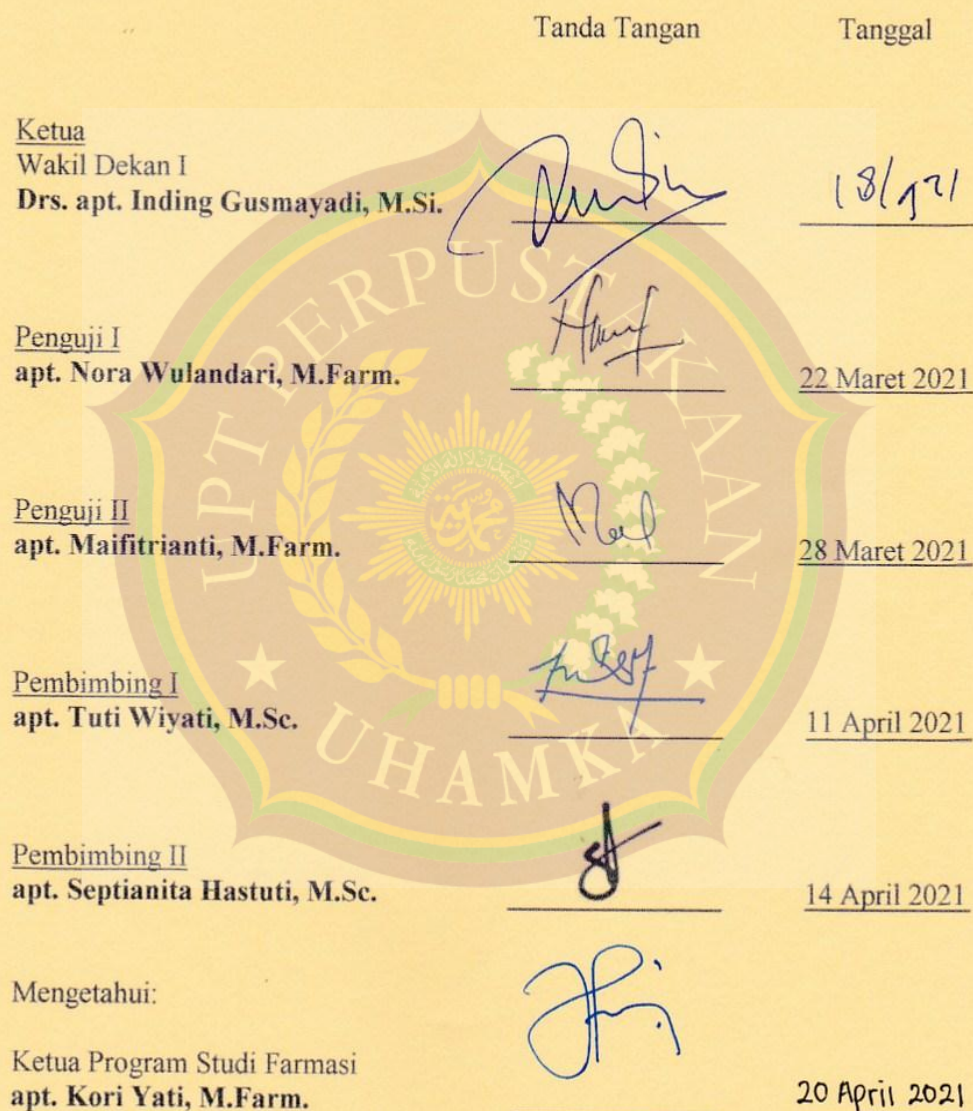 Tanda Tangan Tanggal
Ketua
Wakil Dekan I
Drs. apt. Inding Gusmayadi, M.Si.
Penguji I
apt. Nora Wulandari, M.Farm.
22 Maret 2021
Penguji II
apt. Maifitrianti, M.Farm.
28 Maret 2021
Pembimbing I
apt. Tuti Wiyati, M.Sc.
11 April 2021
Pembimbing II
apt. Septianita Hastuti, M.Sc.
14 April 2021
Mengetahui:
Ketua Program Studi Farmasi
apt. Kori Yati, M.Farm.
20 April 2021
UPT PERPUSTAKAAN
UHAMKA